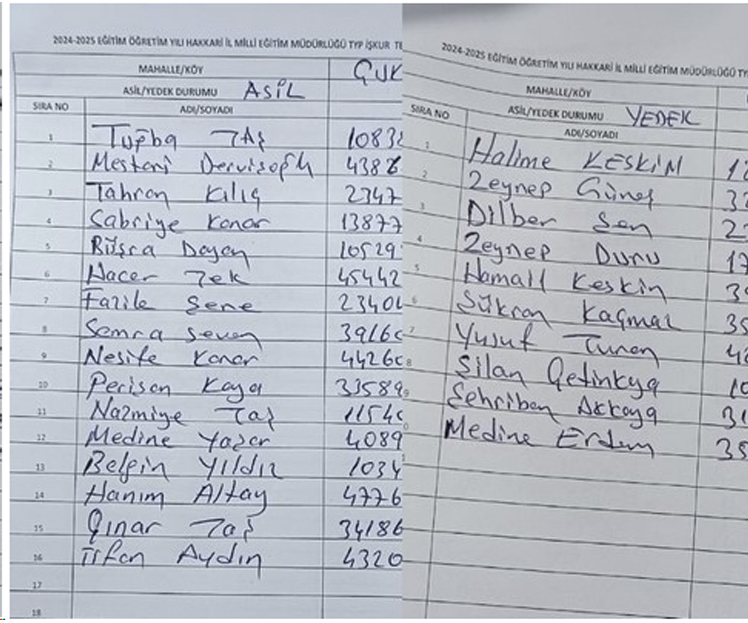 2024-2025 EĞİTİM ÖĞRETİM YILI HAKKARİ İL MİLLİ EĞİTİM MÜDÜRLÜĞÜ TYP İŞKUR TE
MAHALLE/KÖY ÇUK
ASİL/YEDEK DURUMU ASİL
SIRA NO ADI/SOYADI
1 Tuğba TAŞ 10832
2 Mestani Dervişoğlu 4388
3 Tahron Kılıç 2347
4 Sabriye Konar 13877
5 Büşra Doyan 10529
6 Hacer Tek 45442
7 Fazile Şene 2340
8 Semra Seven 3916
9 Nesife Konar 4426
10 Perişan Kaya 33589
11 Nazmiye Taş 1154
12 Medine Yaşar 4089
13 Belgin YILDIZ 1034
14 Hanım Altay 4776
15 Çınar Taş 34186
16 İrfan Aydın 4320
17
18
2024-2025 EĞİTİM ÖĞRETİM YILI HAKKARİ İL MİLLİ EĞİTİM MÜDÜRLÜĞÜ TY
MAHALLE/KÖY
ASİL/YEDEK DURUMU YEDEK
SIRA NO ADI/SOYADI
1 Halime KESKİN
2 Zeynep Güneş
3 Dilber Şen
4 Zeynep Duru 17
5 Hamail Keskin
6 Şükran Kaçmaz 35
7 Yusuf Turan
8 Silan Çetinkya
Şehriban Akkaya
Medine Erdem 35